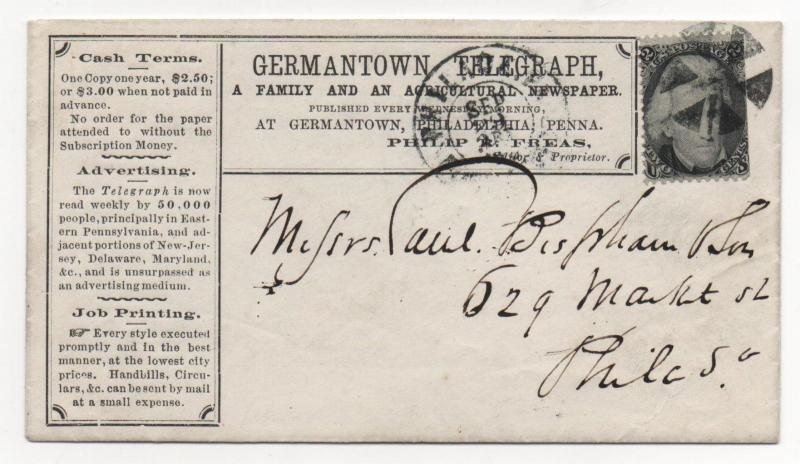 Cash Terms.
One Copy one year, $2.50;
or $3.00 when not paid in
advance.
No order for the paper
attended to without the
Subscription Money.
Advertising.
The Telegraph is now
read weekly by 50,000
people, principally in East-
ern Pennsylvania, and ad-
jacent portions of New-Jer-
sey, Delaware, Maryland,
&c., and is unsurpassed as
an advertising medium.
Job Printing.
☞ Every style executed
promptly and in the best
manner, at the lowest city
prices. Handbills, Circu-
lars, &c. can be sent by mail
at a small expense.
GERMANTOWN TELEGRAPH,
A FAMILY AND AN AGRICULTURAL NEWSPAPER.
PUBLISHED EVERY WEDNESDAY MORNING,
AT GERMANTOWN, PHILADELPHIA, PENNA.
PHILIP R. FREAS,
Editor & Proprietor.
SEP
POSTAGE
CENTS
Messrs. Saml. Bispham & Son
629 Markt st
Philad.a